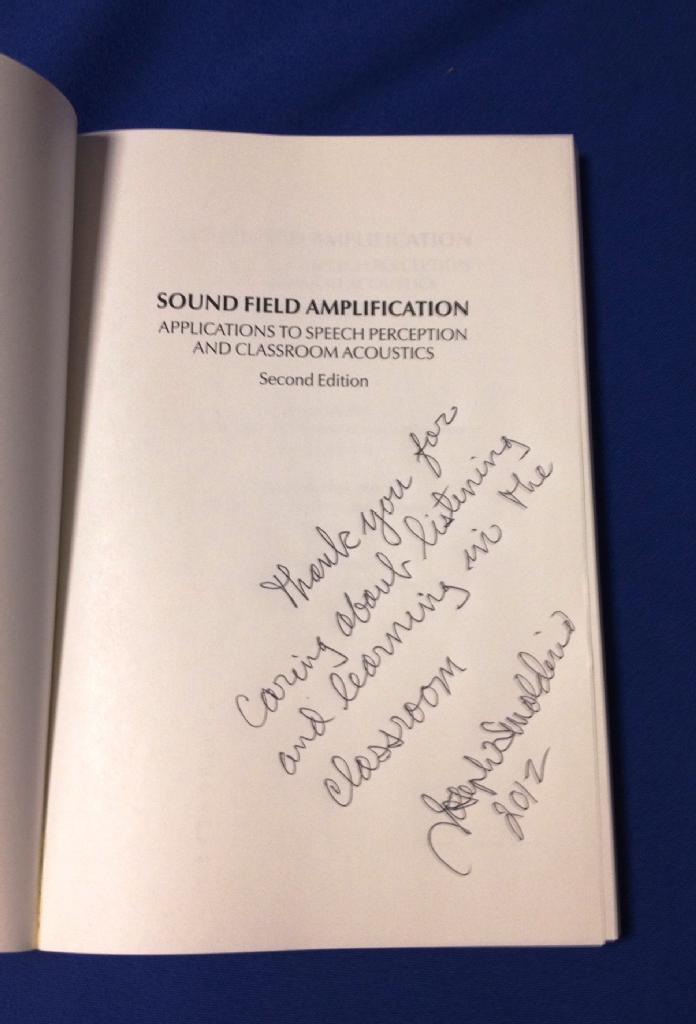 SOUND FIELD AMPLIFICATION
APPLICATIONS TO SPEECH PERCEPTION
AND CLASSROOM ACOUSTICS
Second Edition
Thank you for
Caring about listening
and learning in the
classroom
Joseph Smaldino
2012